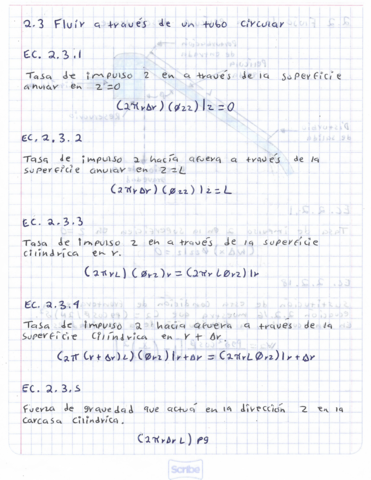 2.3 Fluir a través de un tubo circular
EC. 2.3.1
Tasa de impulso z en a través de la superficie
anular en z=0
(2πrΔr)(Øzz)|z=0
EC. 2.3.2
Tasa de impulso z hacía afuera a través de la
supereficie anular en z=L
(2πrΔr)(Øzz)|z=L
EC. 2.3.3
Tasa de impulso z en a través de la superficie
cilíndrica en r.
(2πrL)(Ørz)r=(2πrLØrz)|r
EC. 2.3.4
Tasa de impulso z hacia afuera a través de la
superficie cilíndrica en r + Δr.
(2π(r+Δr)L)(Ørz)|r+Δr=(2πrLØrz)|r+Δr
EC. 2.3.5
Fuerza de gravedad que actuá en la dirección z en la
carcasa cilíndrica.
(2πrΔrL)ρg
Scribe